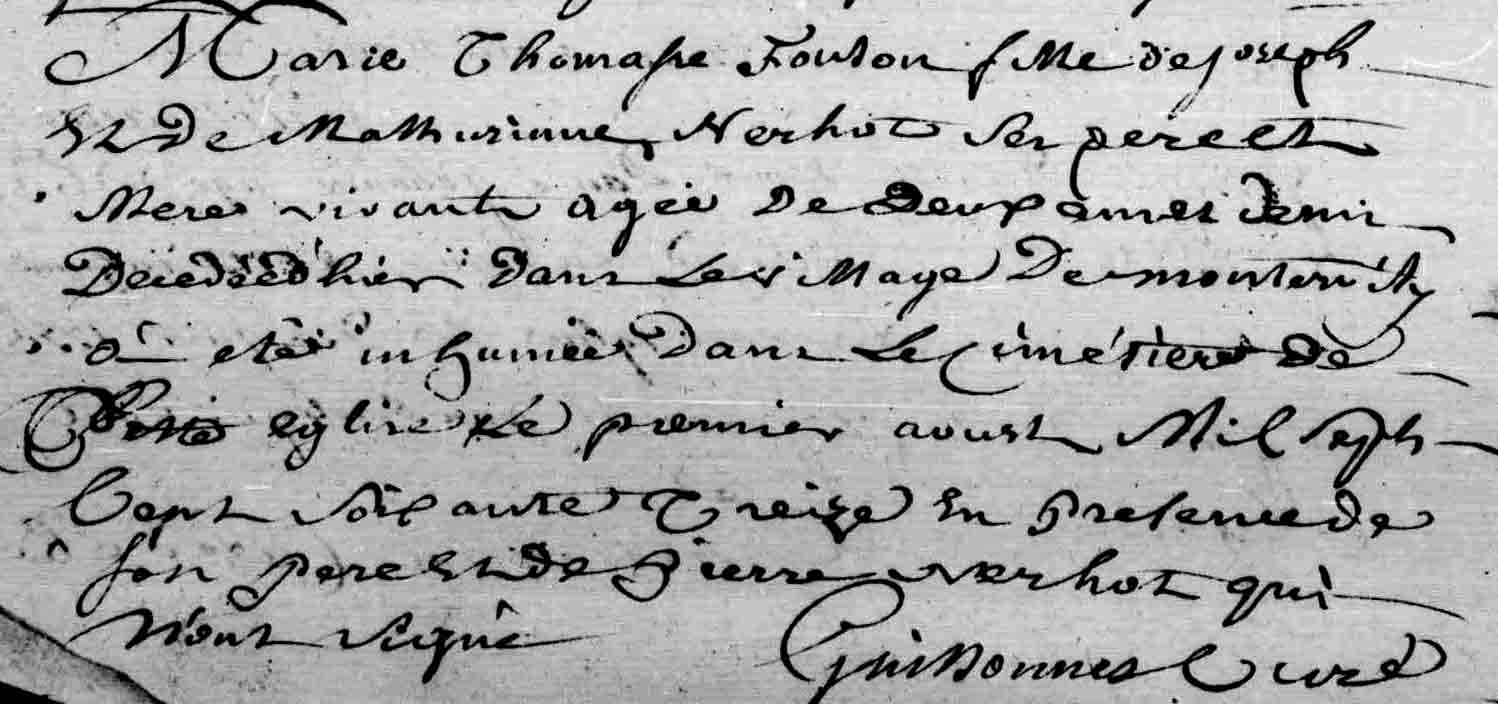 Marie Thomasse Foulon fille de joseph
Et de Mathurinne Nerhot ses pere et
Mere vivants agée De Deux ans et demi
Decedéé d'hier Dans Le vilage De
a eté inhumée Dans Le Cimétiere de
Cette eglise Le premier aoust Mil sept
Cent soixante Treize En presence de
son pere et de Pierre Nerhot qui
n'ont signé Guissonnet Curé